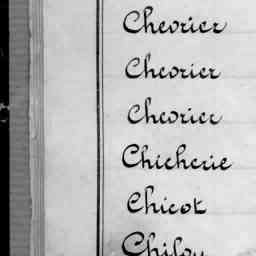 Chevrier
Chevrier
Chevrier
Chicherie
Chicot